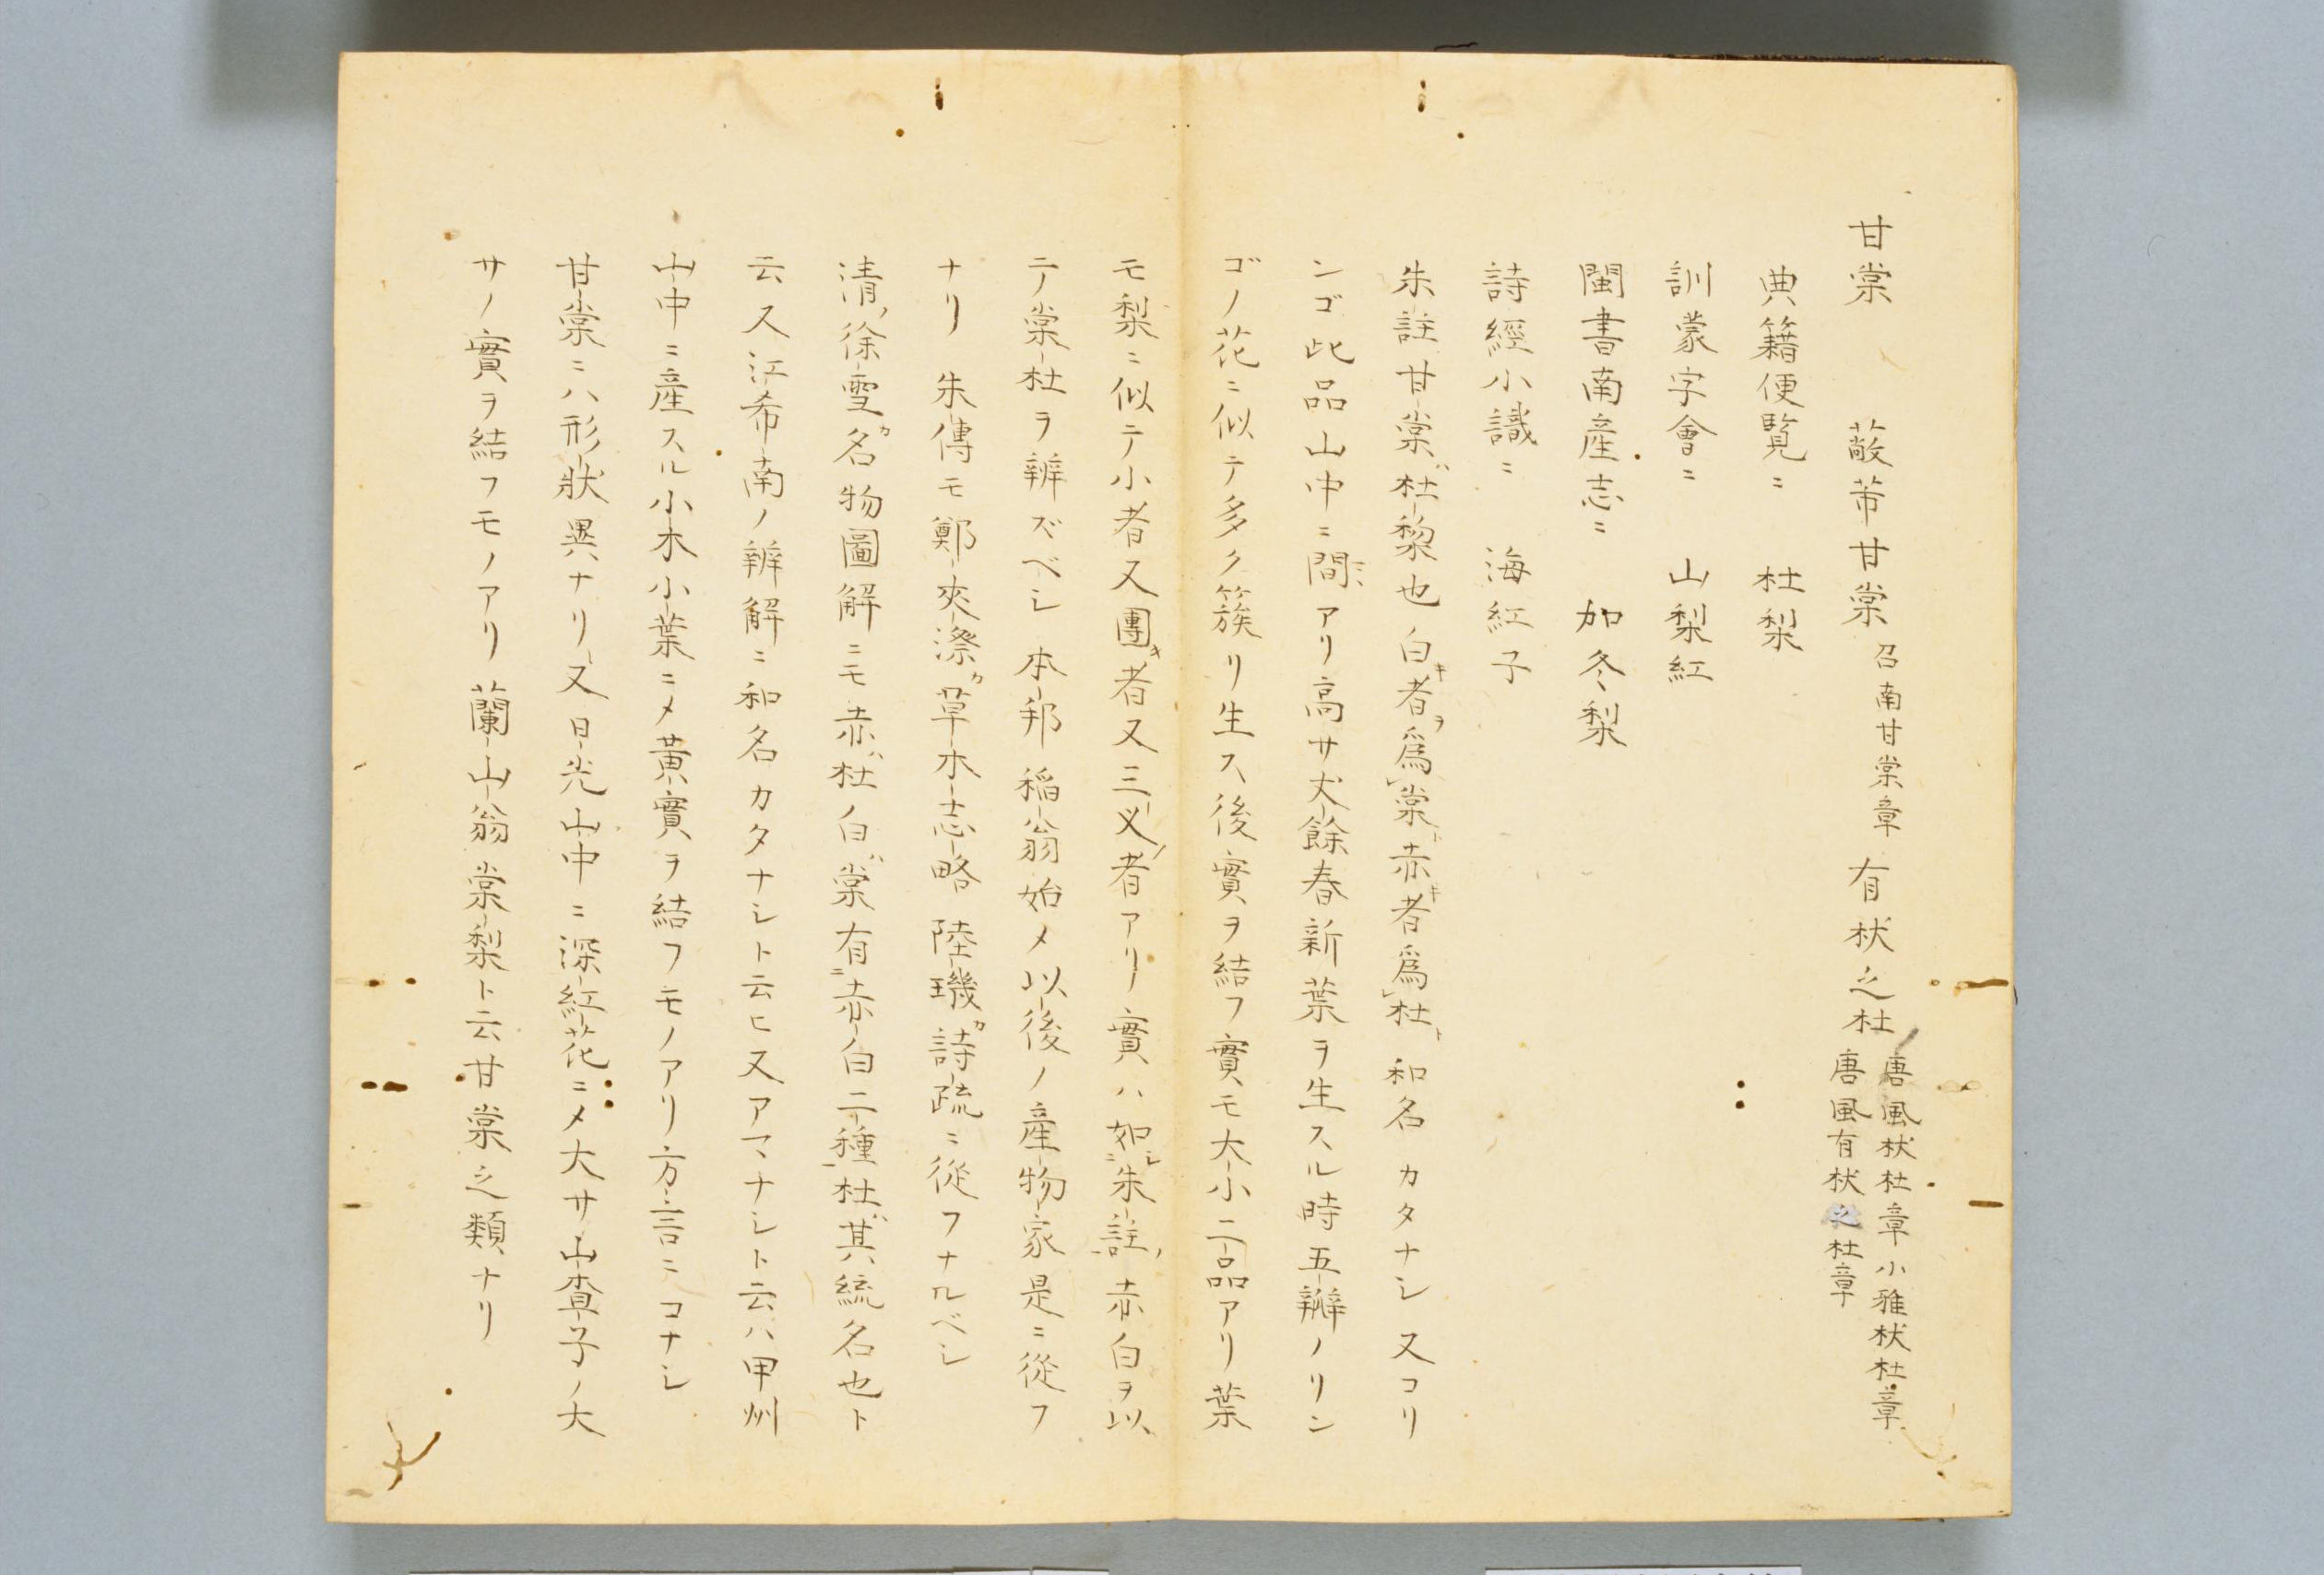 甘棠　蔽芾甘棠 召南甘棠章 有杕之杜 唐風杕杜章小雅杕杜章 唐風有杕之杜章
典籍便覧ニ　杜梨
訓蒙字會ニ　山梨紅
閩書南産志ニ　加冬梨
詩經小識ニ　海紅子
朱註甘棠ハ杜棃也白キ者ヲ爲棠ト赤キ者爲杜ト 和名カタナシ又コリ
ンゴ此品山中ニ間ミアリ高サ丈餘春新葉ヲ生スル時五瓣ノリン
ゴノ花ニ似テ多ク簇リ生ス後實ヲ結フ實モ大小二品アリ葉
モ梨ニ似テ小者又團キ者又三乂ノ者アリ實ハ如シ朱註ノ赤白ヲ以
テ棠杜ヲ辨ズベシ本邦稲翁始メ以後ノ産物家是ニ從フ
ナリ 朱傳モ鄭夾漈カ草木志略 陸璣カ詩疏ニ從フナルベシ
清ノ徐雪カ名物圖解ニモ赤ハ杜ノ白ハ棠有ニ赤白二種一杜ハ其統名也ト
云又江希南ノ辨解ニ和名カタナシト云ヒ又アマナシト云ハ甲州
山中ニ産スル小木小葉ニメ黄實ヲ結フモノアリ方言ニコナシ
甘棠ニハ形狀異ナリ又日光山中ニ深紅花ニメ大サ山査子ノ大
サノ實ヲ結フモノアリ蘭山翁棠梨ト云甘棠之類ナリ